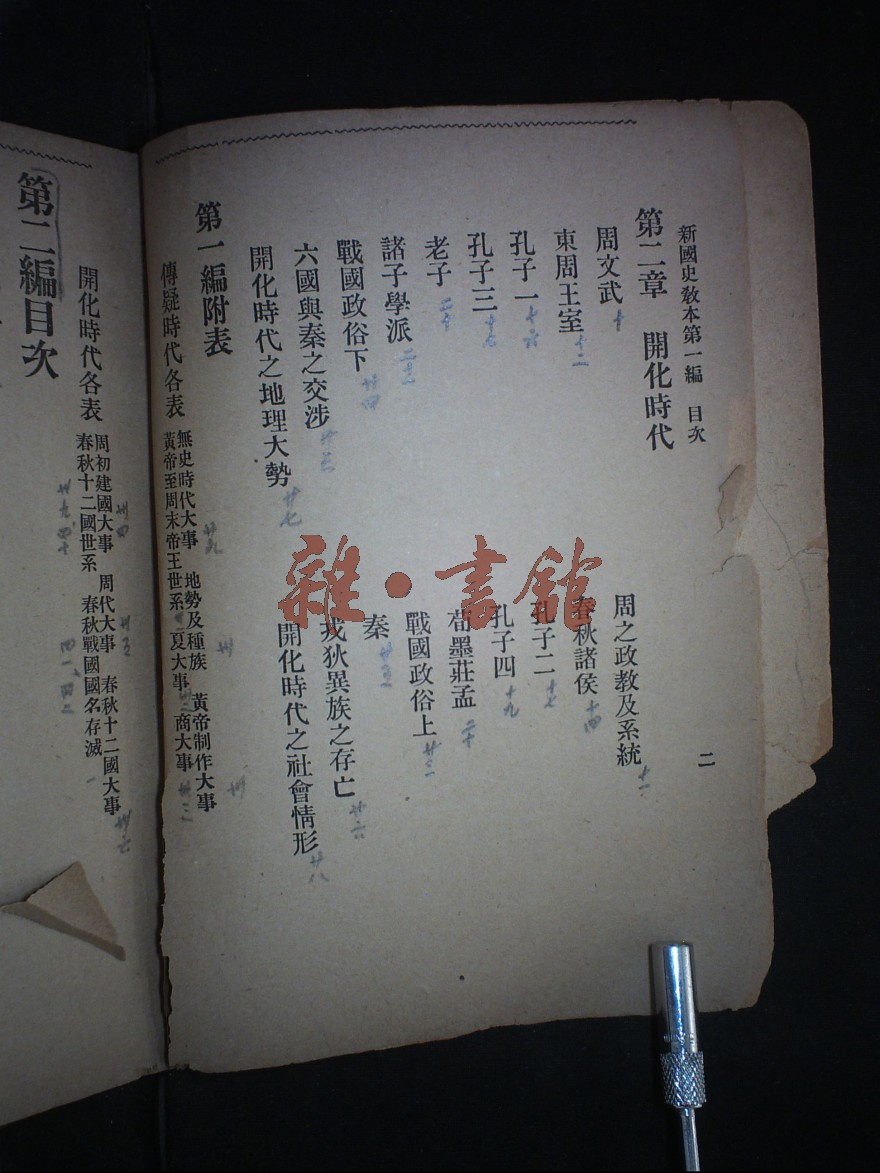 新國史敎本第一編　目次
二
第二章　開化時代
周文武 十
周之政教及系統 十一
東周王室 十二
春秋諸侯 十四
孔子一 十六
孔子二 十七
孔子三 十七
孔子四 十九
老子 二十
荀墨莊孟 二十
諸子學派
戰國政俗上
戰國政俗下 廿四
秦
六國與秦之交涉
戎狄異族之存亡 廿六
開化時代之地理大勢 廿七
開化時代之社會情形 廿八
第一編附表
傳疑時代各表
無史時代大事　地勢及種族　黃帝制作大事
黃帝至周末帝王世系　夏大事　商大事
開化時代各表
周初建國大事　周代大事　春秋十二國大事
春秋十二國世系　春秋戰國國名存滅
第二編目次
雜·書館